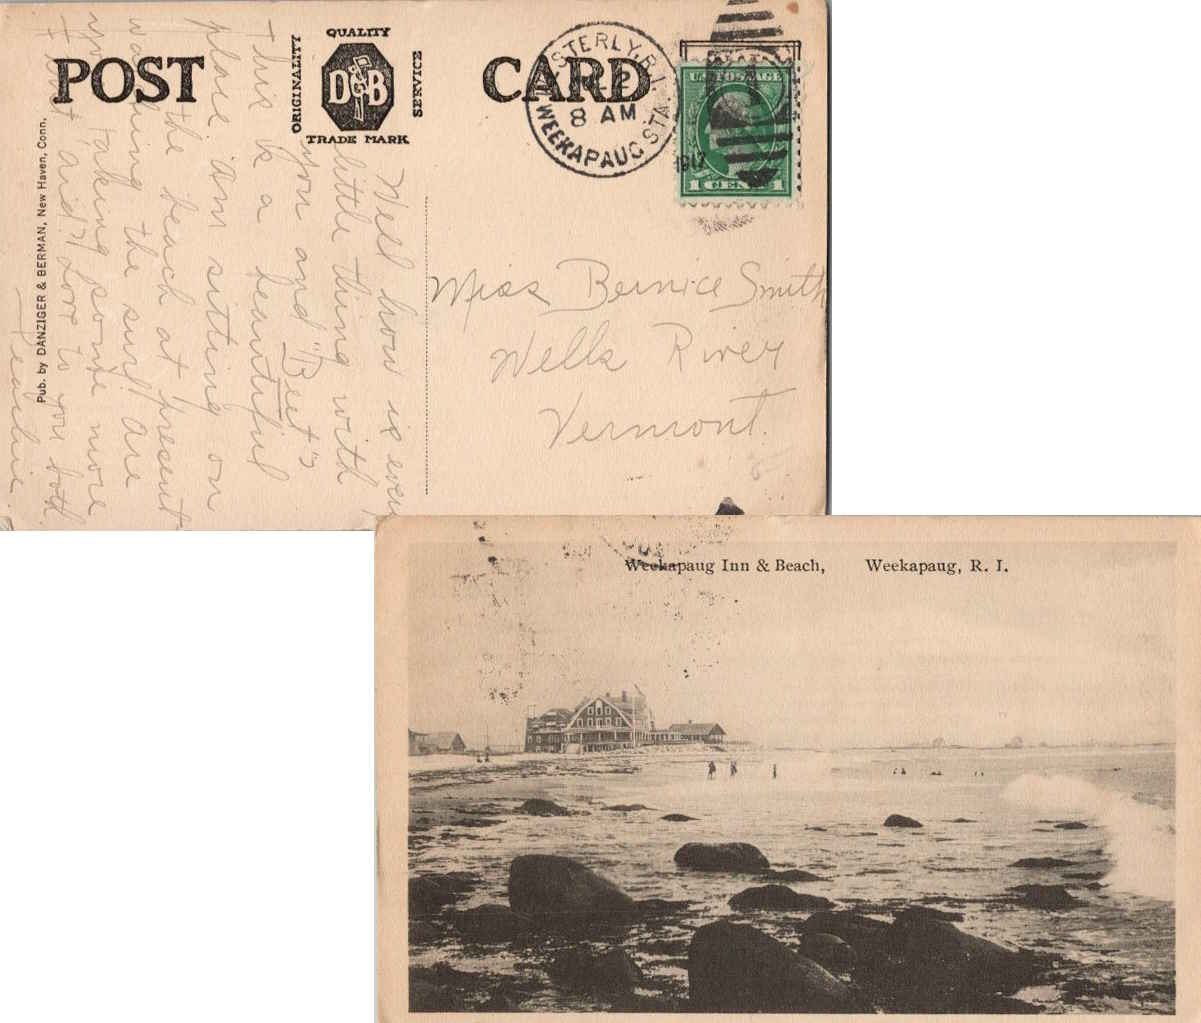 POST CARD
QUALITY
ORIGINALITY
D&B
SERVICE
TRADE MARK
STERLY, R.I.
8 AM
WEEKAPAUG STA.
1917
U.S. POSTAGE
1 CENT 1
Pub. by DANZIGER & BERMAN, New Haven, Conn.
Well how is every
little thing with
you and "Bert"?
This is a beautiful
place. Am sitting on
the beach at present
watching the surf. Are
you taking some more
and? Love to you both
Miss Bernice Smith
Wells River
Vermont.
Weekapaug Inn & Beach, Weekapaug, R. I.